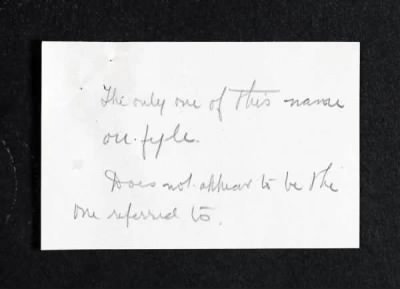 The only one of this name
on fyle.
Does not appear to be the
one referred to.